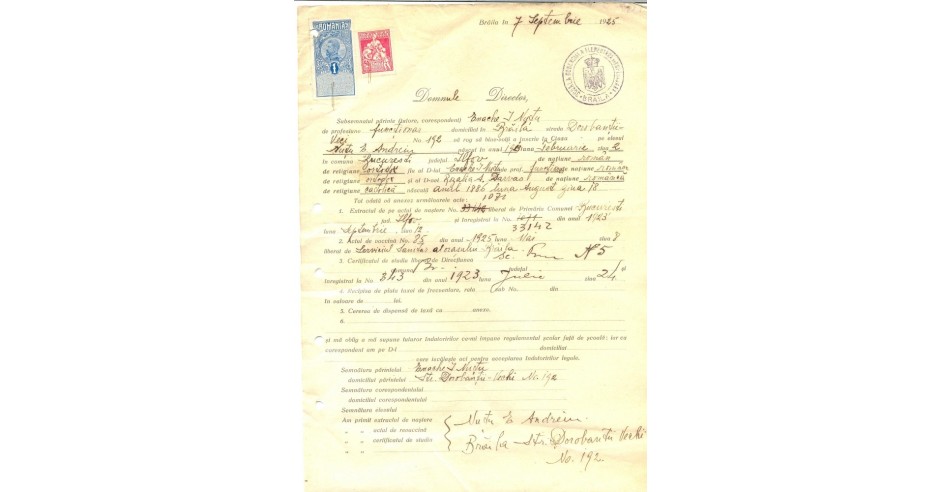 Brăila în 7 Septembrie 1925
ROMANIA
1
Domnule Director,
Subsemnatul părinte (tutore, corespondent) Enache I Nuțu
de profesiune funcționar domiciliat în Brăila strada Dorobanți
Vechi No. 192 vă rog să binevoiți a înscrie în Clasa pe elevul
Nuțu E. Andreiu născut în anul Februarie ziua
în comuna București județul Ilfov de națiune română
de religiune ortodox fiu al D-lui Enache I Nuțu de prof. funcționar de națiune română
de religiune ortodox și al D-nei de națiune română
de religiune catolică născută anul 1886 luna August ziua 18
Tot odată vă anexez următoarele acte:
1. Extractul de pe actul de naștere No. 1070 liberat de Primăria Comunei București
jud. Ilfov și înregistrat la No. 33142 din anul 1925
luna Septembrie ziua 12
2. Actul de vaccină No. 85 din anul 1925 luna Mai ziua 8
liberat de Serviciul Sanitar al orașului Brăila
3. Certificatul de studiu liberat de Direcțiunea No 5
comuna Br. județul și
înregistrat la No 343 din anul 1923 luna Iulie ziua 24
4. Recipisa de plata taxei de frecuentare, rata sub No. din
în valoare de lei.
5. Cererea de dispensă de taxă cu anexe.
6.
și mă oblig a mă supune tuturor îndatoririlor ce-mi impune regulamentul școlar față de școală; iar ca
corespondent am pe D-l domiciliat
care iscălește act pentru acceptarea îndatoririlor legale.
Semnătura părintelui Enache I Nuțu
domiciliul părintelui Str. Dorobanți-Vechi No. 192
Semnătura corespondentului
domiciliul corespondentului
Semnătura elevului
Am primit extractul de naștere
„ „ actul de revaccină
„ „ certificatul de studiu
Nuțu E Andreiu
Brăila - Str. Dorobanți Vechi
No. 192.